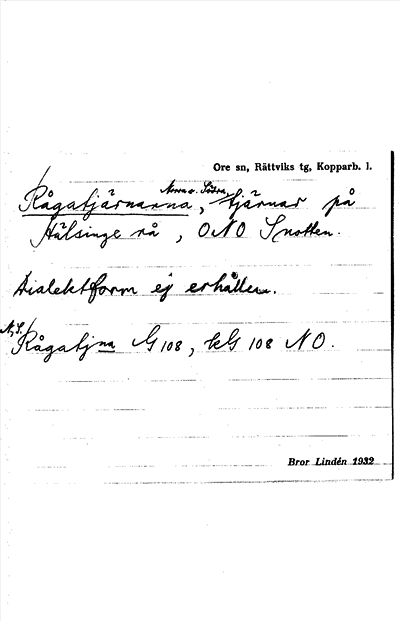 Ore sn, Rättviks tg, Kopparb. l.
Norra o. Södra
Rågatjärnarna, tjärnar på
Hälsinge rå, ONO Snotten.
Dialektform ej erhållen.
N, S. Rågatjna G 108, kG 108 NO.
Bror Lindén 1932